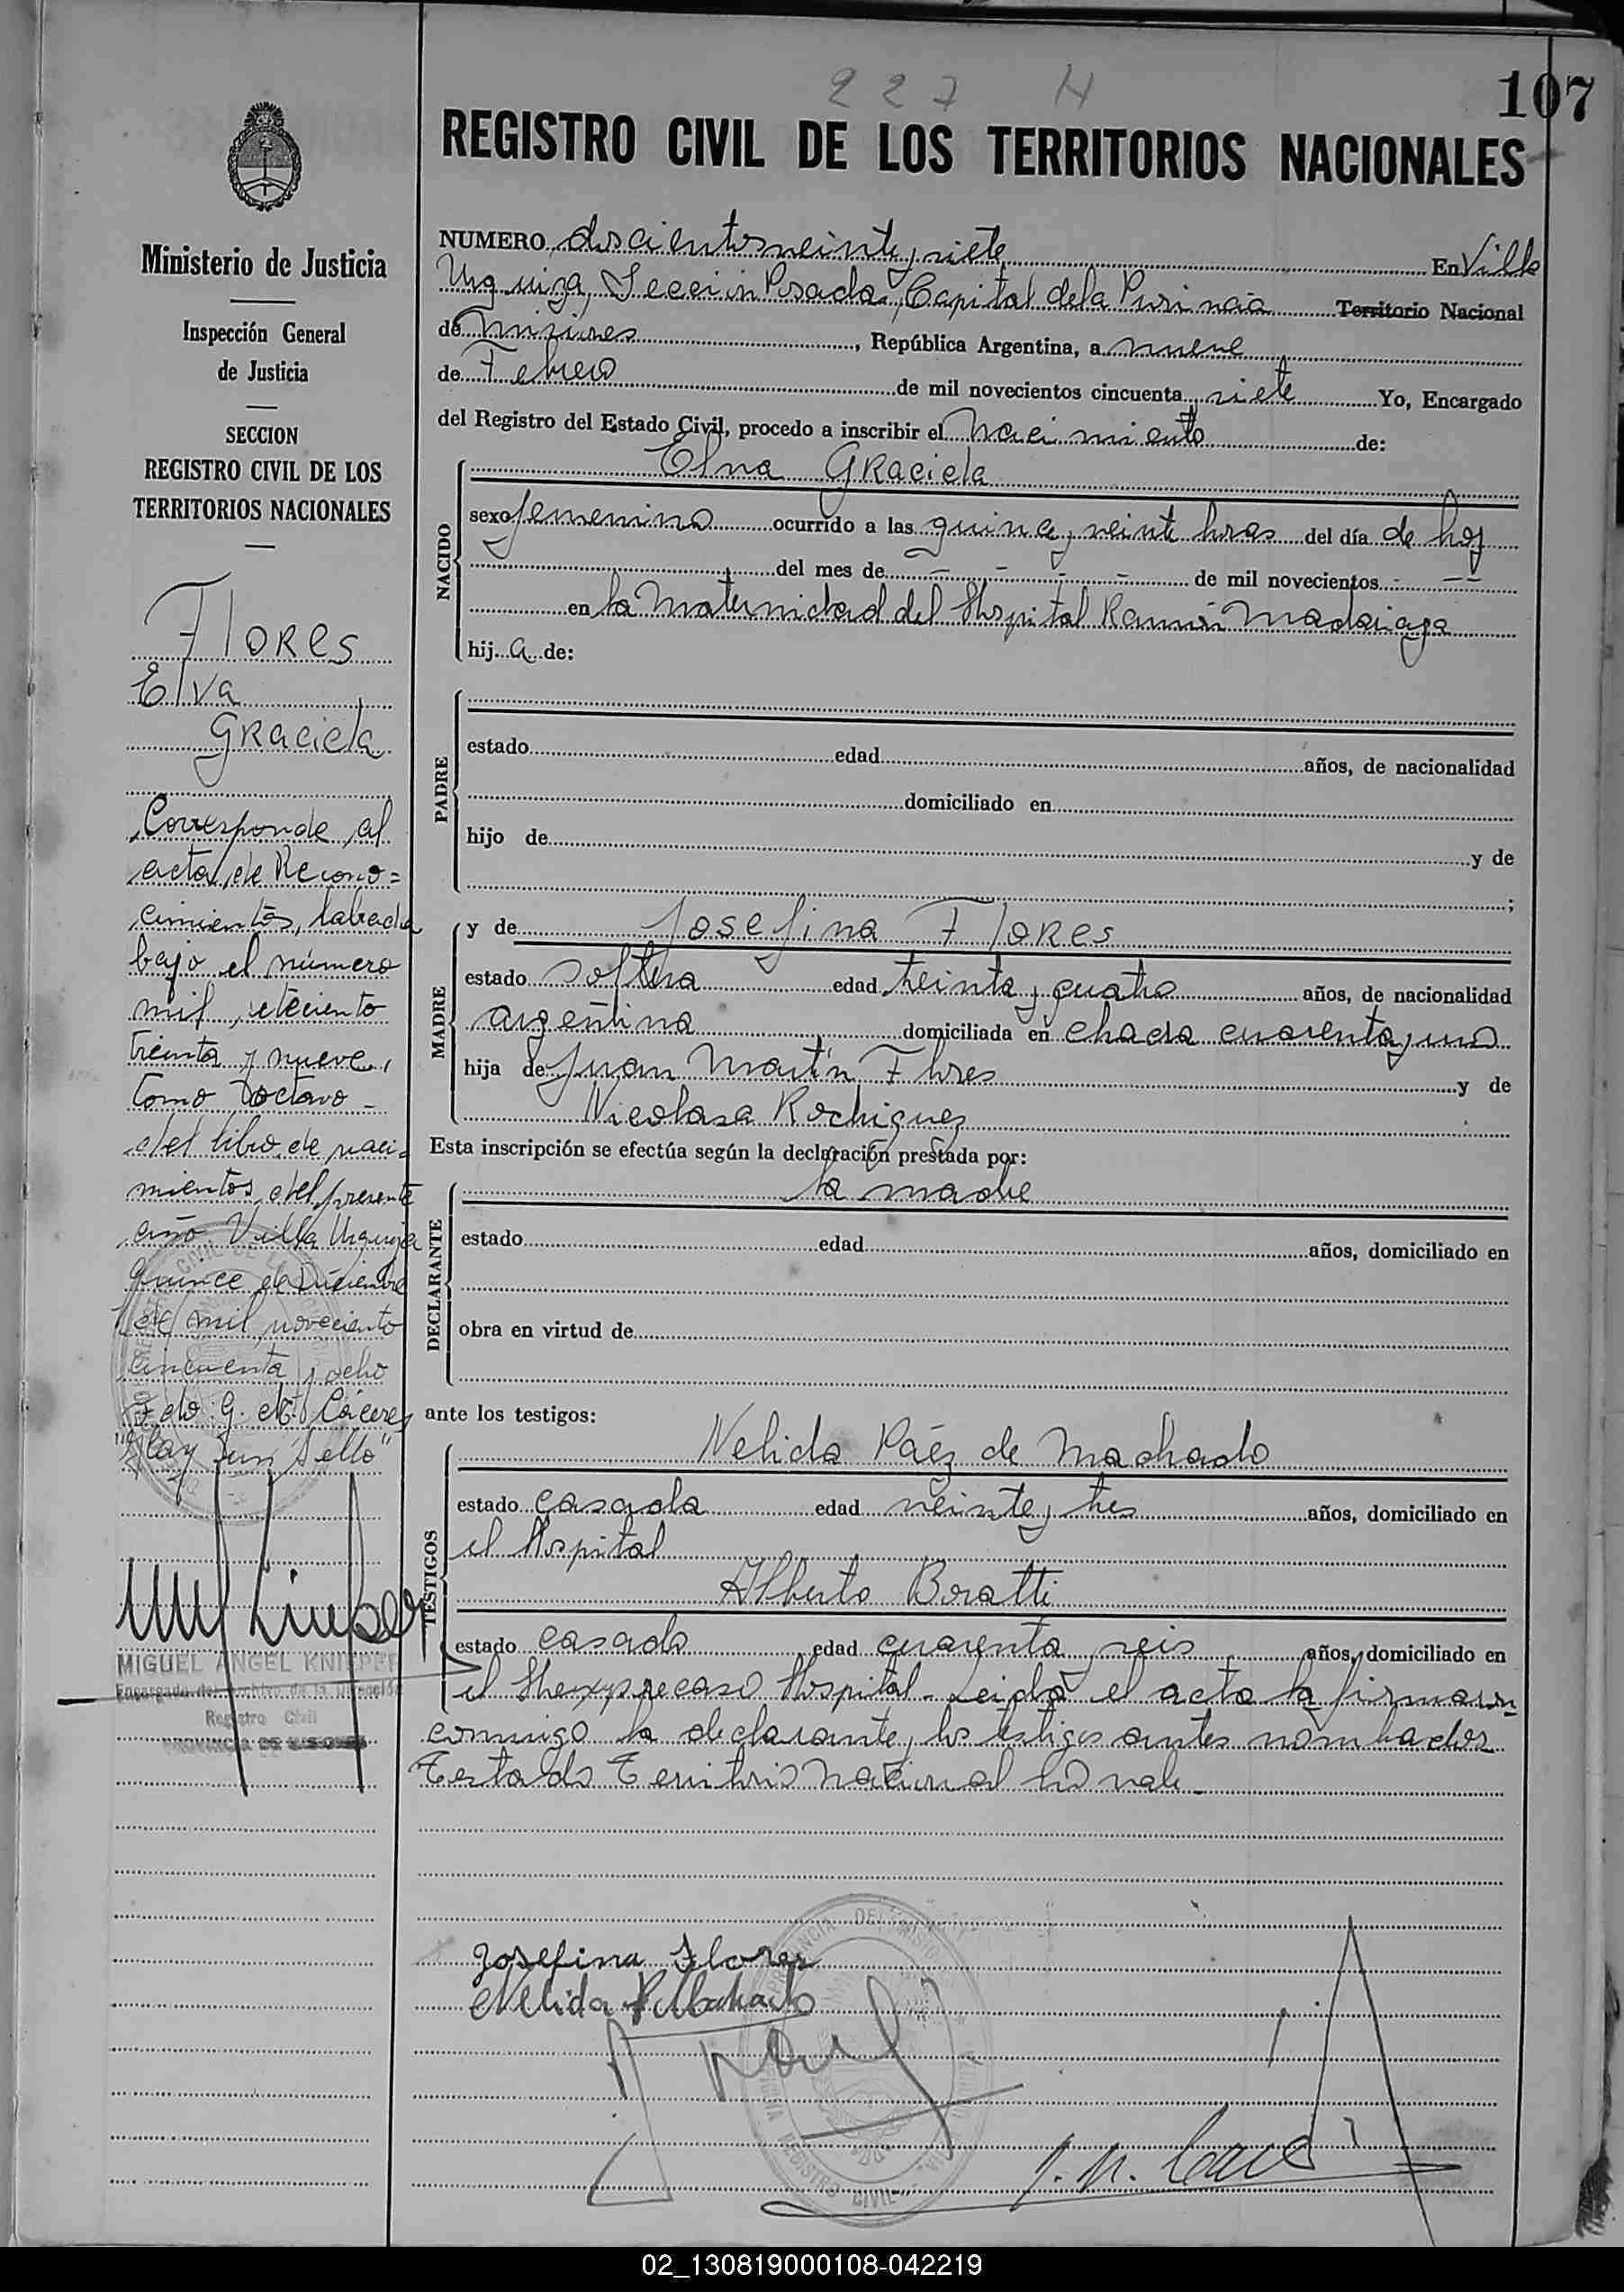 227 H
107
REGISTRO CIVIL DE LOS TERRITORIOS NACIONALES
Ministerio de Justicia
Inspección General
de Justicia
SECCION
REGISTRO CIVIL DE LOS
TERRITORIOS NACIONALES
Flores
Elva
Graciela
Corresponde al
acta de Recono=
cimientos, labrada
bajo el número
mil, seteciento
treinta y nueve,
tomo octavo -
del libro de naci-
mientos del presente
año Villa Urquiza
quince de Diciembre
de mil noveciento
cincuenta y ocho
Fdo: G. de Cáceres
"Hay un sello"
MIGUEL ANGEL KNIEPER
Encargado del Archivo de la Dirección
Registro Civil
PROVINCIA DE MISIONES
NUMERO doscientos veinte y siete En Villa
Urquiza, Sección Posadas, Capital de la Provincia Territorio Nacional
de Misiones, República Argentina, a nueve
de Febrero de mil novecientos cincuenta y siete Yo, Encargado
del Registro del Estado Civil, procedo a inscribir el Nacimiento de:
NACIDO
Elva Graciela
sexo femenino ocurrido a las quince y veinte horas del día de hoy
del mes de - - - - de mil novecientos - - -
en la Maternidad del Hospital Ramón Madariaga
hija de:
PADRE
estado edad años, de nacionalidad
domiciliado en
hijo de y de
;
MADRE
y de Josefina Flores
estado soltera edad treinta y cuatro años, de nacionalidad
argentina domiciliada en chacra cuarenta y uno
hija de Juan Martín Flores y de
Nicolasa Rodriguez
Esta inscripción se efectúa según la declaración prestada por:
DECLARANTE
la madre
estado edad años, domiciliado en
obra en virtud de
ante los testigos:
TESTIGOS
Nelida Páez de Machado
estado casada edad veinte y tres años, domiciliado en
el Hospital
Alberto Boratti
estado casado edad cuarenta y seis años, domiciliado en
el Hospital. Leida el acta la firmaron
conmigo la declarante y los testigos antes nombrados
Testado Territorio Nacional no vale
Josefina Flores
Nelida P. Machado
PROVINCIA DE MISIONES
REGISTRO CIVIL
02_130819000108-042219